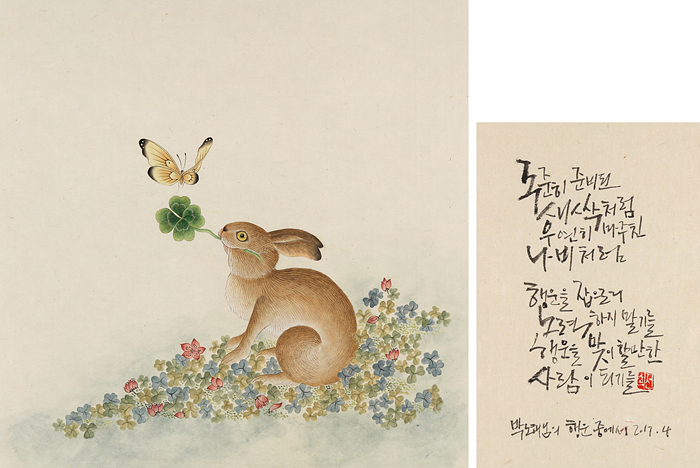 꾸준히 준비된
새싹처럼
우연히 마주친
나비처럼
행운을 잡으려
노력하지 말기를
행운을 맞이할 만한
사람이 되기를
박노해님의 행운 중에서 2017.4